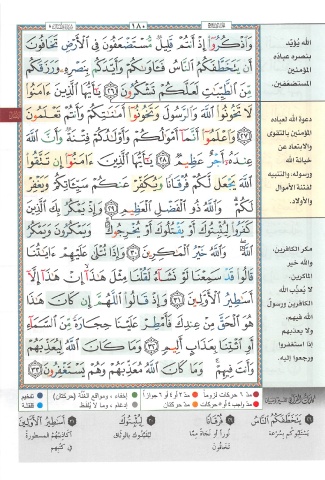 ١٨٠
وَاذْكُرُوا إِذْ أَنتُمْ قَلِيلٌ مُّسْتَضْعَفُونَ فِي الْأَرْضِ تَخَافُونَ
أَن يَتَخَطَّفَكُمُ النَّاسُ فَآوَاكُمْ وَأَيَّدَكُم بِنَصْرِهِ وَرَزَقَكُم
مِّنَ الطَّيِّبَاتِ لَعَلَّكُمْ تَشْكُرُونَ ٢٦ يَا أَيُّهَا الَّذِينَ آمَنُوا
لَا تَخُونُوا اللَّهَ وَالرَّسُولَ وَتَخُونُوا أَمَانَاتِكُمْ وَأَنتُمْ تَعْلَمُونَ
٢٧ وَاعْلَمُوا أَنَّمَا أَمْوَالُكُمْ وَأَوْلَادُكُمْ فِتْنَةٌ وَأَنَّ اللَّهَ
عِندَهُ أَجْرٌ عَظِيمٌ ٢٨ يَا أَيُّهَا الَّذِينَ آمَنُوا إِن تَتَّقُوا
اللَّهَ يَجْعَل لَّكُمْ فُرْقَانًا وَيُكَفِّرْ عَنكُمْ سَيِّئَاتِكُمْ وَيَغْفِرْ
لَكُمْ وَاللَّهُ ذُو الْفَضْلِ الْعَظِيمِ ٢٩ وَإِذْ يَمْكُرُ بِكَ الَّذِينَ
كَفَرُوا لِيُثْبِتُوكَ أَوْ يَقْتُلُوكَ أَوْ يُخْرِجُوكَ وَيَمْكُرُونَ وَيَمْكُرُ
اللَّهُ وَاللَّهُ خَيْرُ الْمَاكِرِينَ ٣٠ وَإِذَا تُتْلَىٰ عَلَيْهِمْ آيَاتُنَا
قَالُوا قَدْ سَمِعْنَا لَوْ نَشَاءُ لَقُلْنَا مِثْلَ هَٰذَا إِنْ هَٰذَا إِلَّا
أَسَاطِيرُ الْأَوَّلِينَ ٣١ وَإِذْ قَالُوا اللَّهُمَّ إِن كَانَ هَٰذَا
هُوَ الْحَقَّ مِنْ عِندِكَ فَأَمْطِرْ عَلَيْنَا حِجَارَةً مِّنَ السَّمَاءِ
أَوِ ائْتِنَا بِعَذَابٍ أَلِيمٍ ٣٢ وَمَا كَانَ اللَّهُ لِيُعَذِّبَهُمْ
وَأَنتَ فِيهِمْ وَمَا كَانَ اللَّهُ مُعَذِّبَهُمْ وَهُمْ يَسْتَغْفِرُونَ ٣٣
الله يُؤيد
بنصره عباده
المؤمنين
المستضعفين.
دعوة الله لعباده
المؤمنين بالتقوى
والابتعاد عن
خيانة الله
ورسوله، والتنبيه
لفتنة الأموال
والأولاد.
مكر الكافرين،
والله خير
الماكرين.
لا يُعذّب الله
الكافرين ورسولُ
الله فيهم،
ولا يعذبهم
إذا استغفروا
ورجعوا إليه.
مدّ ٦ حركات لزوماً
مدّ ٢ أو ٤ أو ٦ جوازاً
إخفاء، ومواقع الغُنَّة (حركتان)
تفخيم
مدّ واجب ٤ أو ٥ حركات
مدّ حركتان
إدغام، وما لا يُلفظ
قلقلة
يَتَخَطَّفَكُمُ النَّاسُ
يَسْتَلِبُوكُم بِسُرْعَة
فُرْقَانًا
نُوراً أو نَجَاةً مِمَّا
تَخَافُونَ
لِيُثْبِتُوكَ
لِيُقَيِّدُوكَ بِالوَثَاقِ
أَسَاطِيرُ الْأَوَّلِينَ
أكاذيبُهم المسطورةُ
في كتبهم